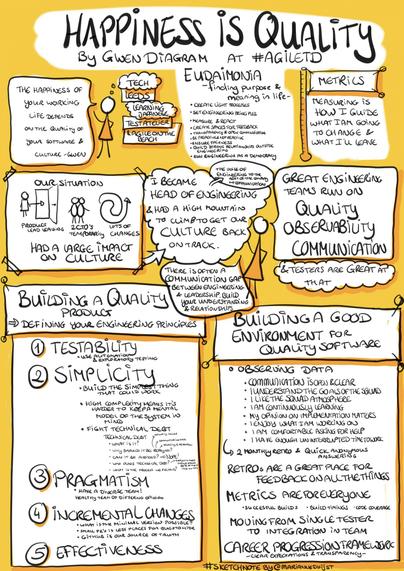 HAPPINESS IS QUALITY
BY GWEN DIAGRAM AT #AGILETD
THE HAPPINESS OF
YOUR WORKING
LIFE DEPENDS
ON THE QUALITY OF
YOUR SOFTWARE &
CULTURE - GWEN
TECH
LEEDS
LEARNING
JAPANESE
TESTATELIER
#AGILE ON THE
BEACH
EUDAIMONIA
-finding purpose &
meaning in life-
• CREATE LIGHT PROCESSES
• GET ENGINEERING PEOPLE
• MEASURE & REACT
• CREATE SPACES FOR FEEDBACK
ENGINEERING
• RUN ENGINEERING AS A DEMOCRACY
METRICS
MEASURING IS
HOW I GUIDE
WHAT I AM GOING
TO CHANGE &
WHAT I'LL LEAVE
OUR SITUATION
PRODUCT
LEAD LEAVING
2 CTO'S
TEMPORARILY
LOTS OF
CHANGES
HAD A LARGE IMPACT
ON CULTURE
I BECAME
HEAD OF ENGINEERING
& HAD A HIGH MOUNTAIN
TO CLIMB TO GET OUR
CULTURE BACK
ON TRACK.
THERE IS OFTEN A
COMMUNICATION GAP
BETWEEN ENGINEERING
& LEADERSHIP. BUILD
YOUR UNDERSTANDING
& RELATIONSHIPS
GREAT ENGINEERING
TEAMS RUN ON
QUALITY
OBSERVABILITY
COMMUNICATION
& TESTERS ARE GREAT AT
THAT
BUILDING A QUALITY
PRODUCT
⇒ DEFINING YOUR ENGINEERING PRINCIPLES
1 TESTABILITY
• USE AUTOMATION
& EXPLORATORY TESTING
2 SIMPLICITY
• BUILD THE SIMPLEST THING
THAT COULD WORK
• HIGH COMPLEXITY MEANS IT'S
HARDER TO KEEP A MENTAL
MODEL OF THE SYSTEM IN
MIND
• FIGHT TECHNICAL DEBT
TECHNICAL DEBT:
- WHAT IS IT?
3 PRAGMATISM
• HAVE A DIVERSE TEAM!
HEALTHY TEAM OF DIFFERING OPINIONS
4 INCREMENTAL CHANGES
• WHAT IS THE MINIMAL VERSION POSSIBLE?
• GITHUB IS OUR SOURCE OF TRUTH
5 EFFECTIVENESS
BUILDING A GOOD
ENVIRONMENT FOR
QUALITY SOFTWARE
• OBSERVING DATA
• COMMUNICATION IS OPEN & CLEAR
• I UNDERSTAND THE GOALS OF THE SQUAD
• I LIKE THE SQUAD ATMOSPHERE
• I AM CONTINUOUSLY LEARNING
• MY OPINION ON IMPLEMENTATION MATTERS
• I ENJOY WHAT I AM WORKING ON
• I AM COMFORTABLE ASKING FOR HELP
• I HAVE ENOUGH UNINTERRUPTED TIME TO WORK
↳ 2 MONTHLY RETRO & QUICK ANONYMOUS
ANSWERING
RETROS ARE A GREAT PLACE FOR
FEEDBACK ON ALL THE THINGS
METRICS ARE FOR EVERYONE
• SUCCESSFUL BUILDS • BUILD TIMINGS • CODE COVERAGE
MOVING FROM SINGLE TESTER
TO INTEGRATION IN TEAM
CAREER PROGRESSION FRAMEWORK
- CLEAR EXPECTATIONS & TRANSPARENCY -
#SKETCHNOTE BY @MARIANNEDUIJST